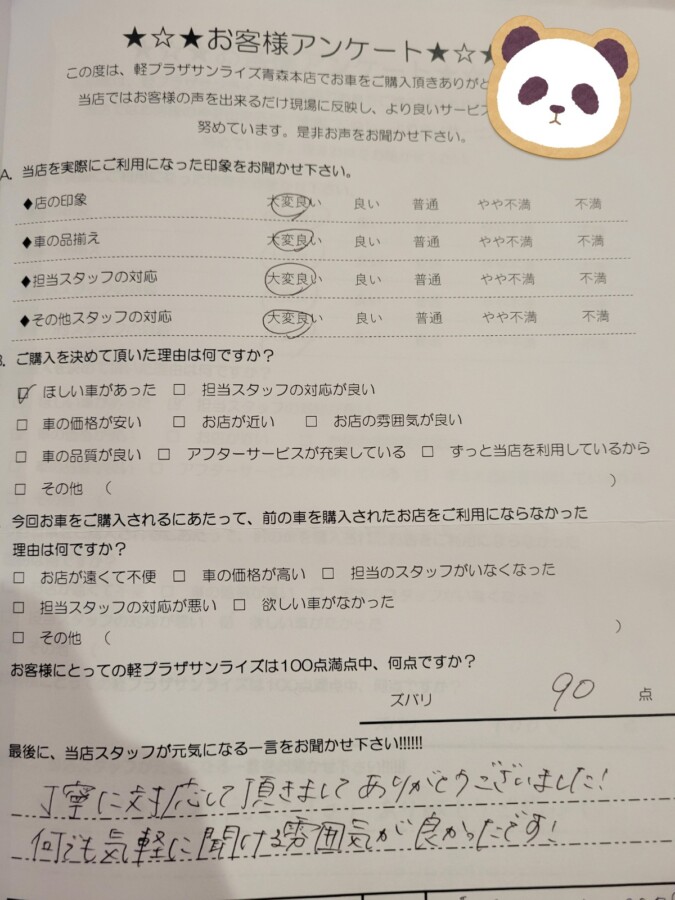 ★☆★お客様アンケート★☆
この度は、軽プラザサンライズ青森本店でお車をご購入頂きありがと
当店ではお客様の声を出来るだけ現場に反映し、より良いサービス
努めています。是非お声をお聞かせ下さい。
A. 当店を実際にご利用になった印象をお聞かせ下さい。
◆店の印象 大変良い 良い 普通 やや不満 不満
◆車の品揃え 大変良い 良い 普通 やや不満 不満
◆担当スタッフの対応 大変良い 良い 普通 やや不満 不満
◆その他スタッフの対応 大変良い 良い 普通 やや不満 不満
ご購入を決めて頂いた理由は何ですか？
☑ ほしい車があった □ 担当スタッフの対応が良い
□ 車の価格が安い □ お店が近い □ お店の雰囲気が良い
□ 車の品質が良い □ アフターサービスが充実している □ ずっと当店を利用しているから
□ その他 （ ）
今回お車をご購入されるにあたって、前の車を購入されたお店をご利用にならなかった
理由は何ですか？
□ お店が遠くて不便 □ 車の価格が高い □ 担当のスタッフがいなくなった
□ 担当スタッフの対応が悪い □ 欲しい車がなかった
□ その他 （ ）
お客様にとっての軽プラザサンライズは100点満点中、何点ですか？
ズバリ 90 点
最後に、当店スタッフが元気になる一言をお聞かせ下さい!!!!!!
丁寧に対応して頂きまして ありがとうございました！
何でも気軽に聞ける雰囲気が良かったです！